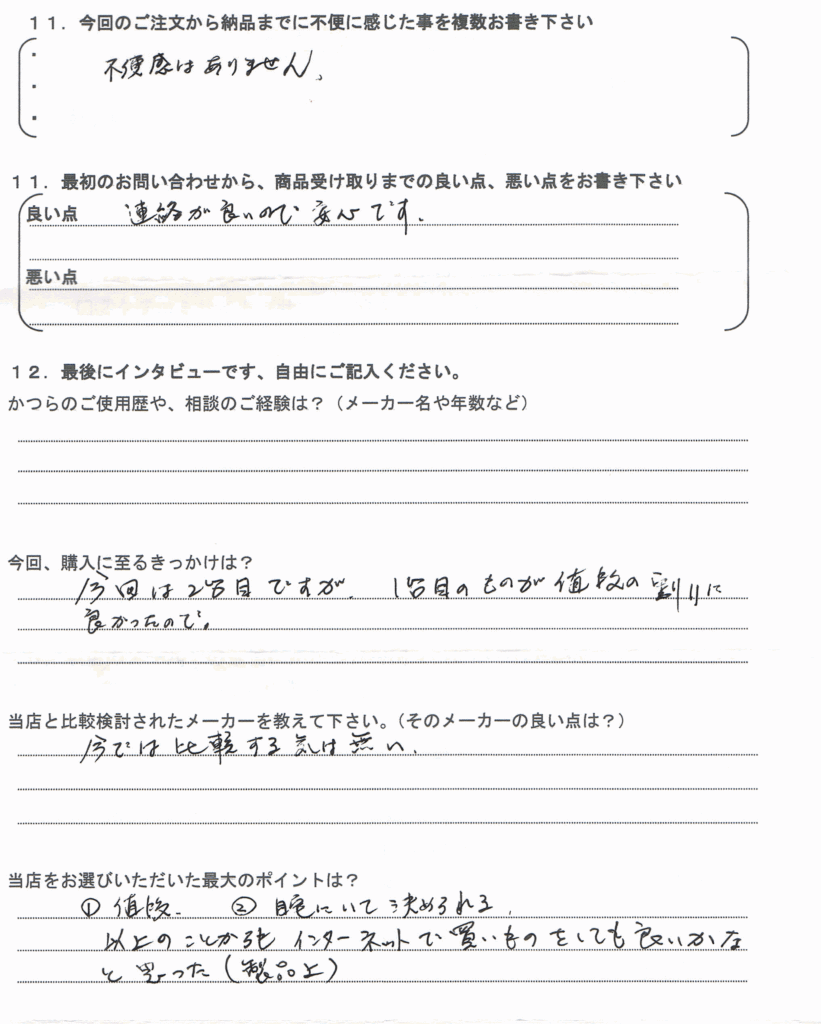 11．今回のご注文から納品までに不便に感じた事を複数お書き下さい
・ 不便感はありません、
・
・
11．最初のお問い合わせから、商品受け取りまでの良い点、悪い点をお書き下さい
良い点 連絡が良いので安心です．
悪い点
12．最後にインタビューです、自由にご記入ください。
かつらのご使用歴や、相談のご経験は？（メーカー名や年数など）
今回、購入に至るきっかけは？
今回は2台目ですが、1台目のものが値段の割りに
良かったので。
当店と比較検討されたメーカーを教えて下さい。（そのメーカーの良い点は？）
今では比較する気は無い．
当店をお選びいただいた最大のポイントは？
① 値段． ② 自宅にいて決められる．
以上のことからもインターネットで買いものをしても良いかな
と思った（製品上）